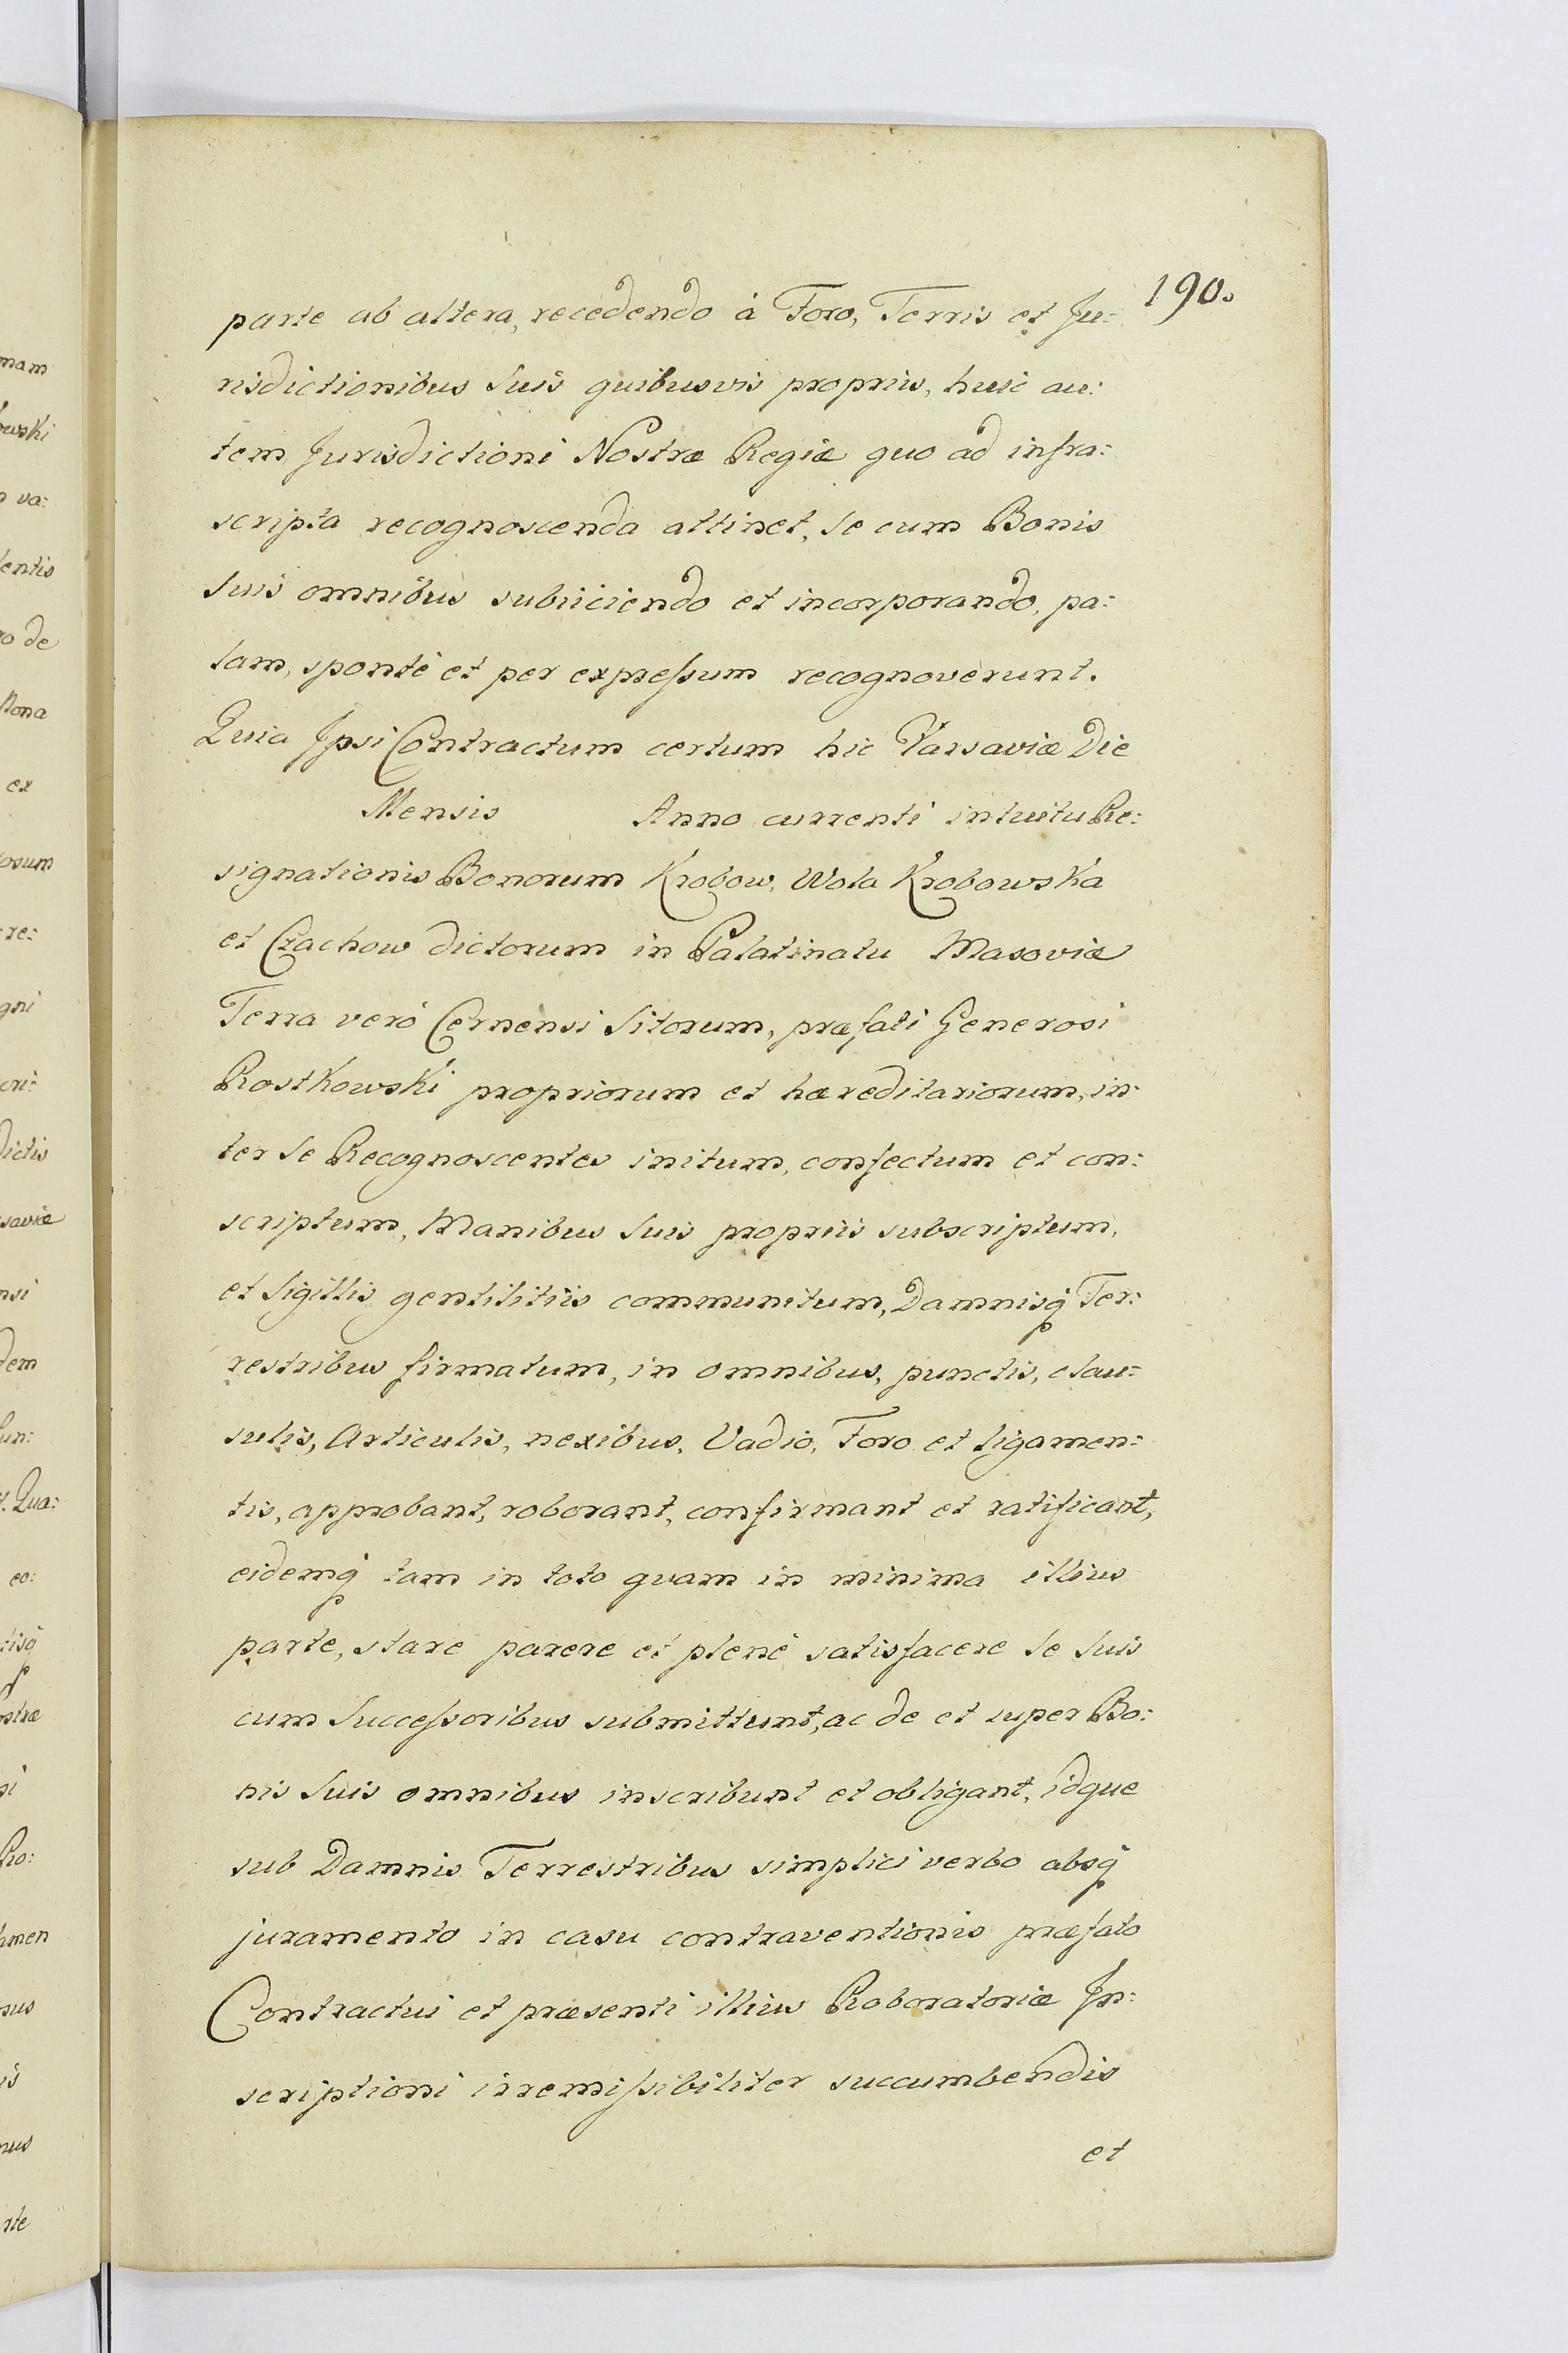 190.
parte ab altera, recedendo à Foro, Terris et Ju:
risdictionibus Suis quibusvis propriis, huic au:
tem Jurisdictioni Nostræ Regiæ quo ad infra:
scripta recognoscenda attinet, Se cum Bonis
Suis omnibus subiiciendo et incorporando, pa:
lam, sponte et per expressum recognoverunt.
Quia Ipsi Contractum certum hic Varsaviæ Die
Mensis Anno currenti intuitu Re:
signationis Bonorum Krobow, Wola Krobowska
et Czachow dictorum in Palatinatu Masoviæ
Terra verò Cernensi Sitorum, præfati Generosi
Rostkowski propriorum et hæreditariorum, in:
ter Se Recognoscentes initum, confectum et con:
scriptum, Manibus Suis propriis subscriptum,
et Sigillis gentilitiis communitum, Damnisq Ter:
restribus firmatum, in omnibus, punctis, clau:
sulis, Articulis, nexibus, Vadio, Foro et ligamen:
tis, approbant, roborant, confirmant et ratificant,
eidemq tam in toto quam in minima illius
parte, stare parere et plenè satisfacere Se Suis
cum Successoribus submittunt, ac de et super Bo:
nis Suis omnibus inscribunt et obligant, idque
sub Damnis Terrestribus simplici verbo absq
juramento in casu contraventionis præfato
Contractui et præsenti illius Roboratoriæ In:
scriptioni irremissibiliter succumbendis
et